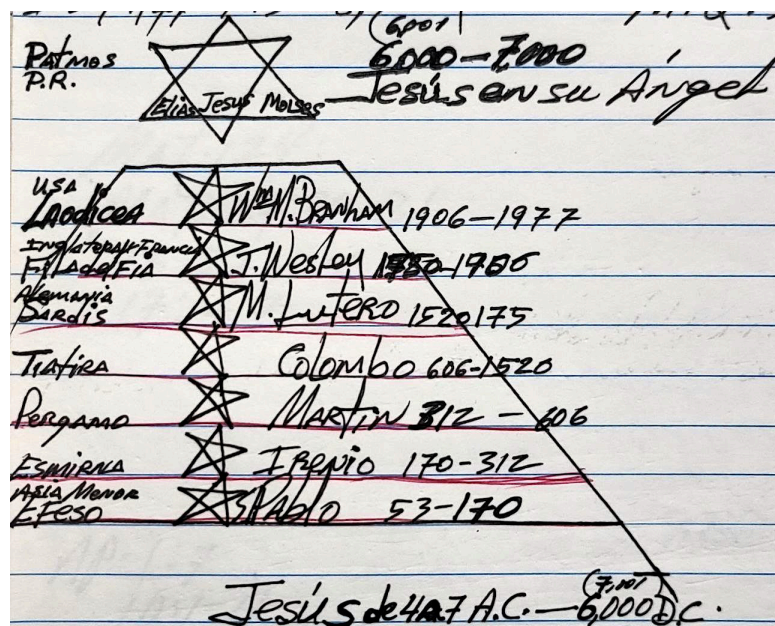 (6,001
PATMOS
P.R.
6,000-7,000
Elias Jesus Moises
Jesús en su Ángel
USA
LAODICEA Wm M. BRANHAM 1906-1977
Inglaterra y Francia
FILADELFIA J. Wesley
Alemania
SARDIS M. LUTERO 1520175
TIATIRA COLOMBO 606-1520
PERGAMO MARTIN 312 - 606
ESMIRNA IRENIO 170-312
ASIA MENOR
EFESO S Pablo 53-170
(7,001
Jesús de 4 a 7 A.C. - 6,000 D.C.